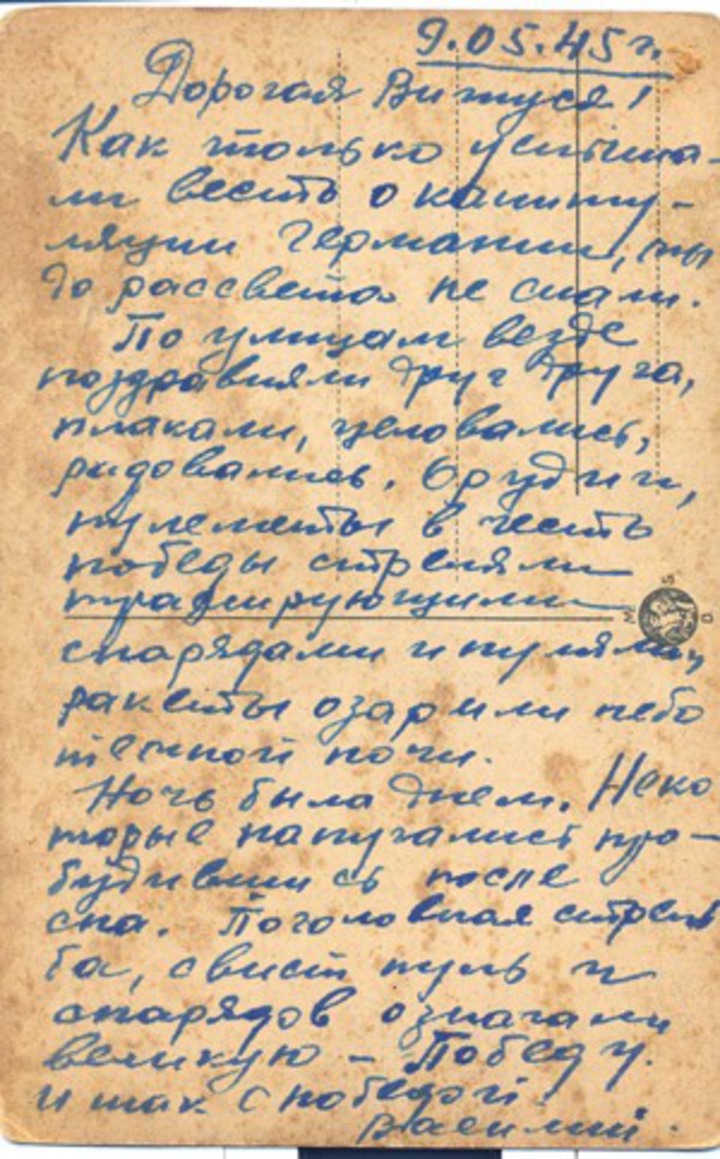 9.05.45 г.
Дорогая Витуся!
Как только услыша-
ли весть о капиту-
ляции Германии, мы
до рассвета не спали.
По улицам везде
поздравляли друг друга,
плакали, целовались,
радовались. Орудия,
пулеметы в честь
победы стреляли
трассирующими
снарядами и пулями,
ракеты озарили небо
темной ночи.
Ночь была днем. Неко
торые напугались про-
будившись после
сна. Поголовная стрель
ба, свист пуль и
снарядов означали
великую - Победу.
И так с победой!
Василий.